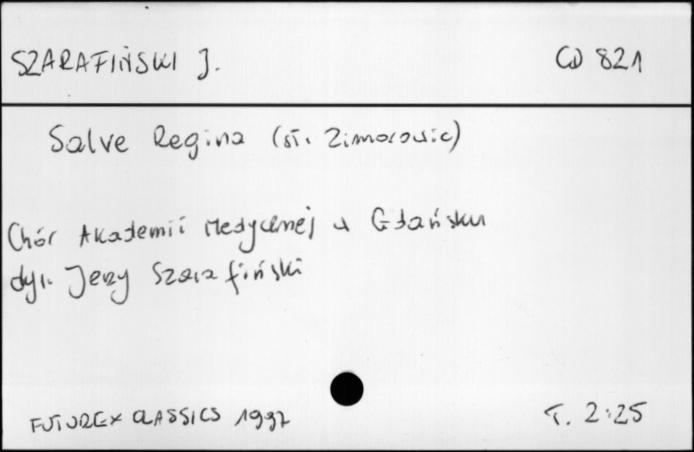 SZARAFIŃSKI J. CD 821
Salve Regina (sł. Zimorowic)
Chór Akademii Medycznej w Gdańsku
dyr. Jerzy Szarafiński
FUTUREX CLASSICS 1997 T. 2:25